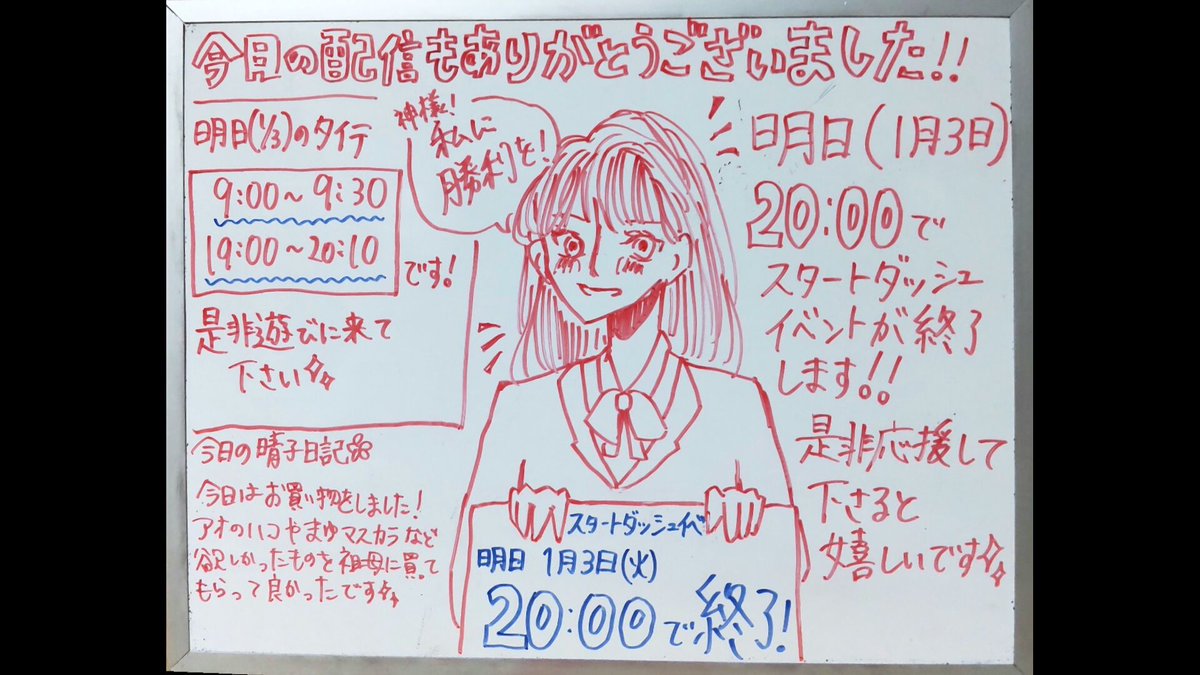 今日の配信もありがとうございました!!
明日(1/3)のタイテ
9:00〜9:30
19:00〜20:10
です!
是非遊びに来て
下さい
今日の晴子日記
今日はお買い物をしました!
アオのハコやまゆマスカラなど
欲しかったものを祖母に買って
もらって良かったです
神様!
私に
勝利を!
明日(1月3日)
20:00で
スタートダッシュ
イベントが終了
します!!
是非応援して
下さると
嬉しいです
スタートダッシュイベ
明日 1月3日(火)
20:00で終了!